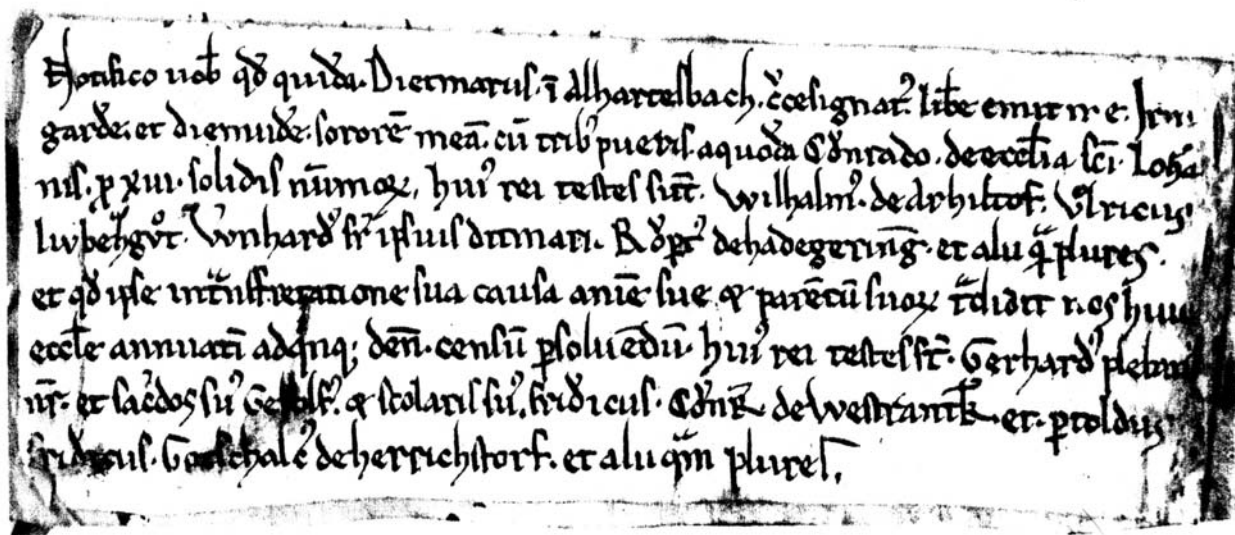 Notifico uob̄ qd̄ quidā. Dietmarus. ī Alhartesbach. c̄cesignatꝰ. libe emit me. Irmi
gardē. et diemudē. sororē meā. cū tribꝰ pueris. a quodā Cōnrado. de eccl̄ia sc̄i. Ioh̄a
nis. ꝓ xiii. solidis nūmoꝝ, huiꝰ rei testes sūt. Wilhalmꝰ. de Vlricus
fr̄ ipsius ditmari. de hadegerinḡ. et alii qᵃ̄ plures.
et qd̄ ipse sua causa anīe sue. ⁊ parētū suoꝝ tᵃdidit nos huic
eccl̄e annuatī ad qinqꝫ den̄. censū ꝑsoluēdū. huiꝰ rei testes st̄. Gerhardꝰ pleban
nr̄. et sac̄dos suꝰ ⁊ scolaris suꝰ. fridricus. de et. ꝑtoldus
fridricus. Gotschalcꝰ de herrichstorf. et alii qᵃm plures.